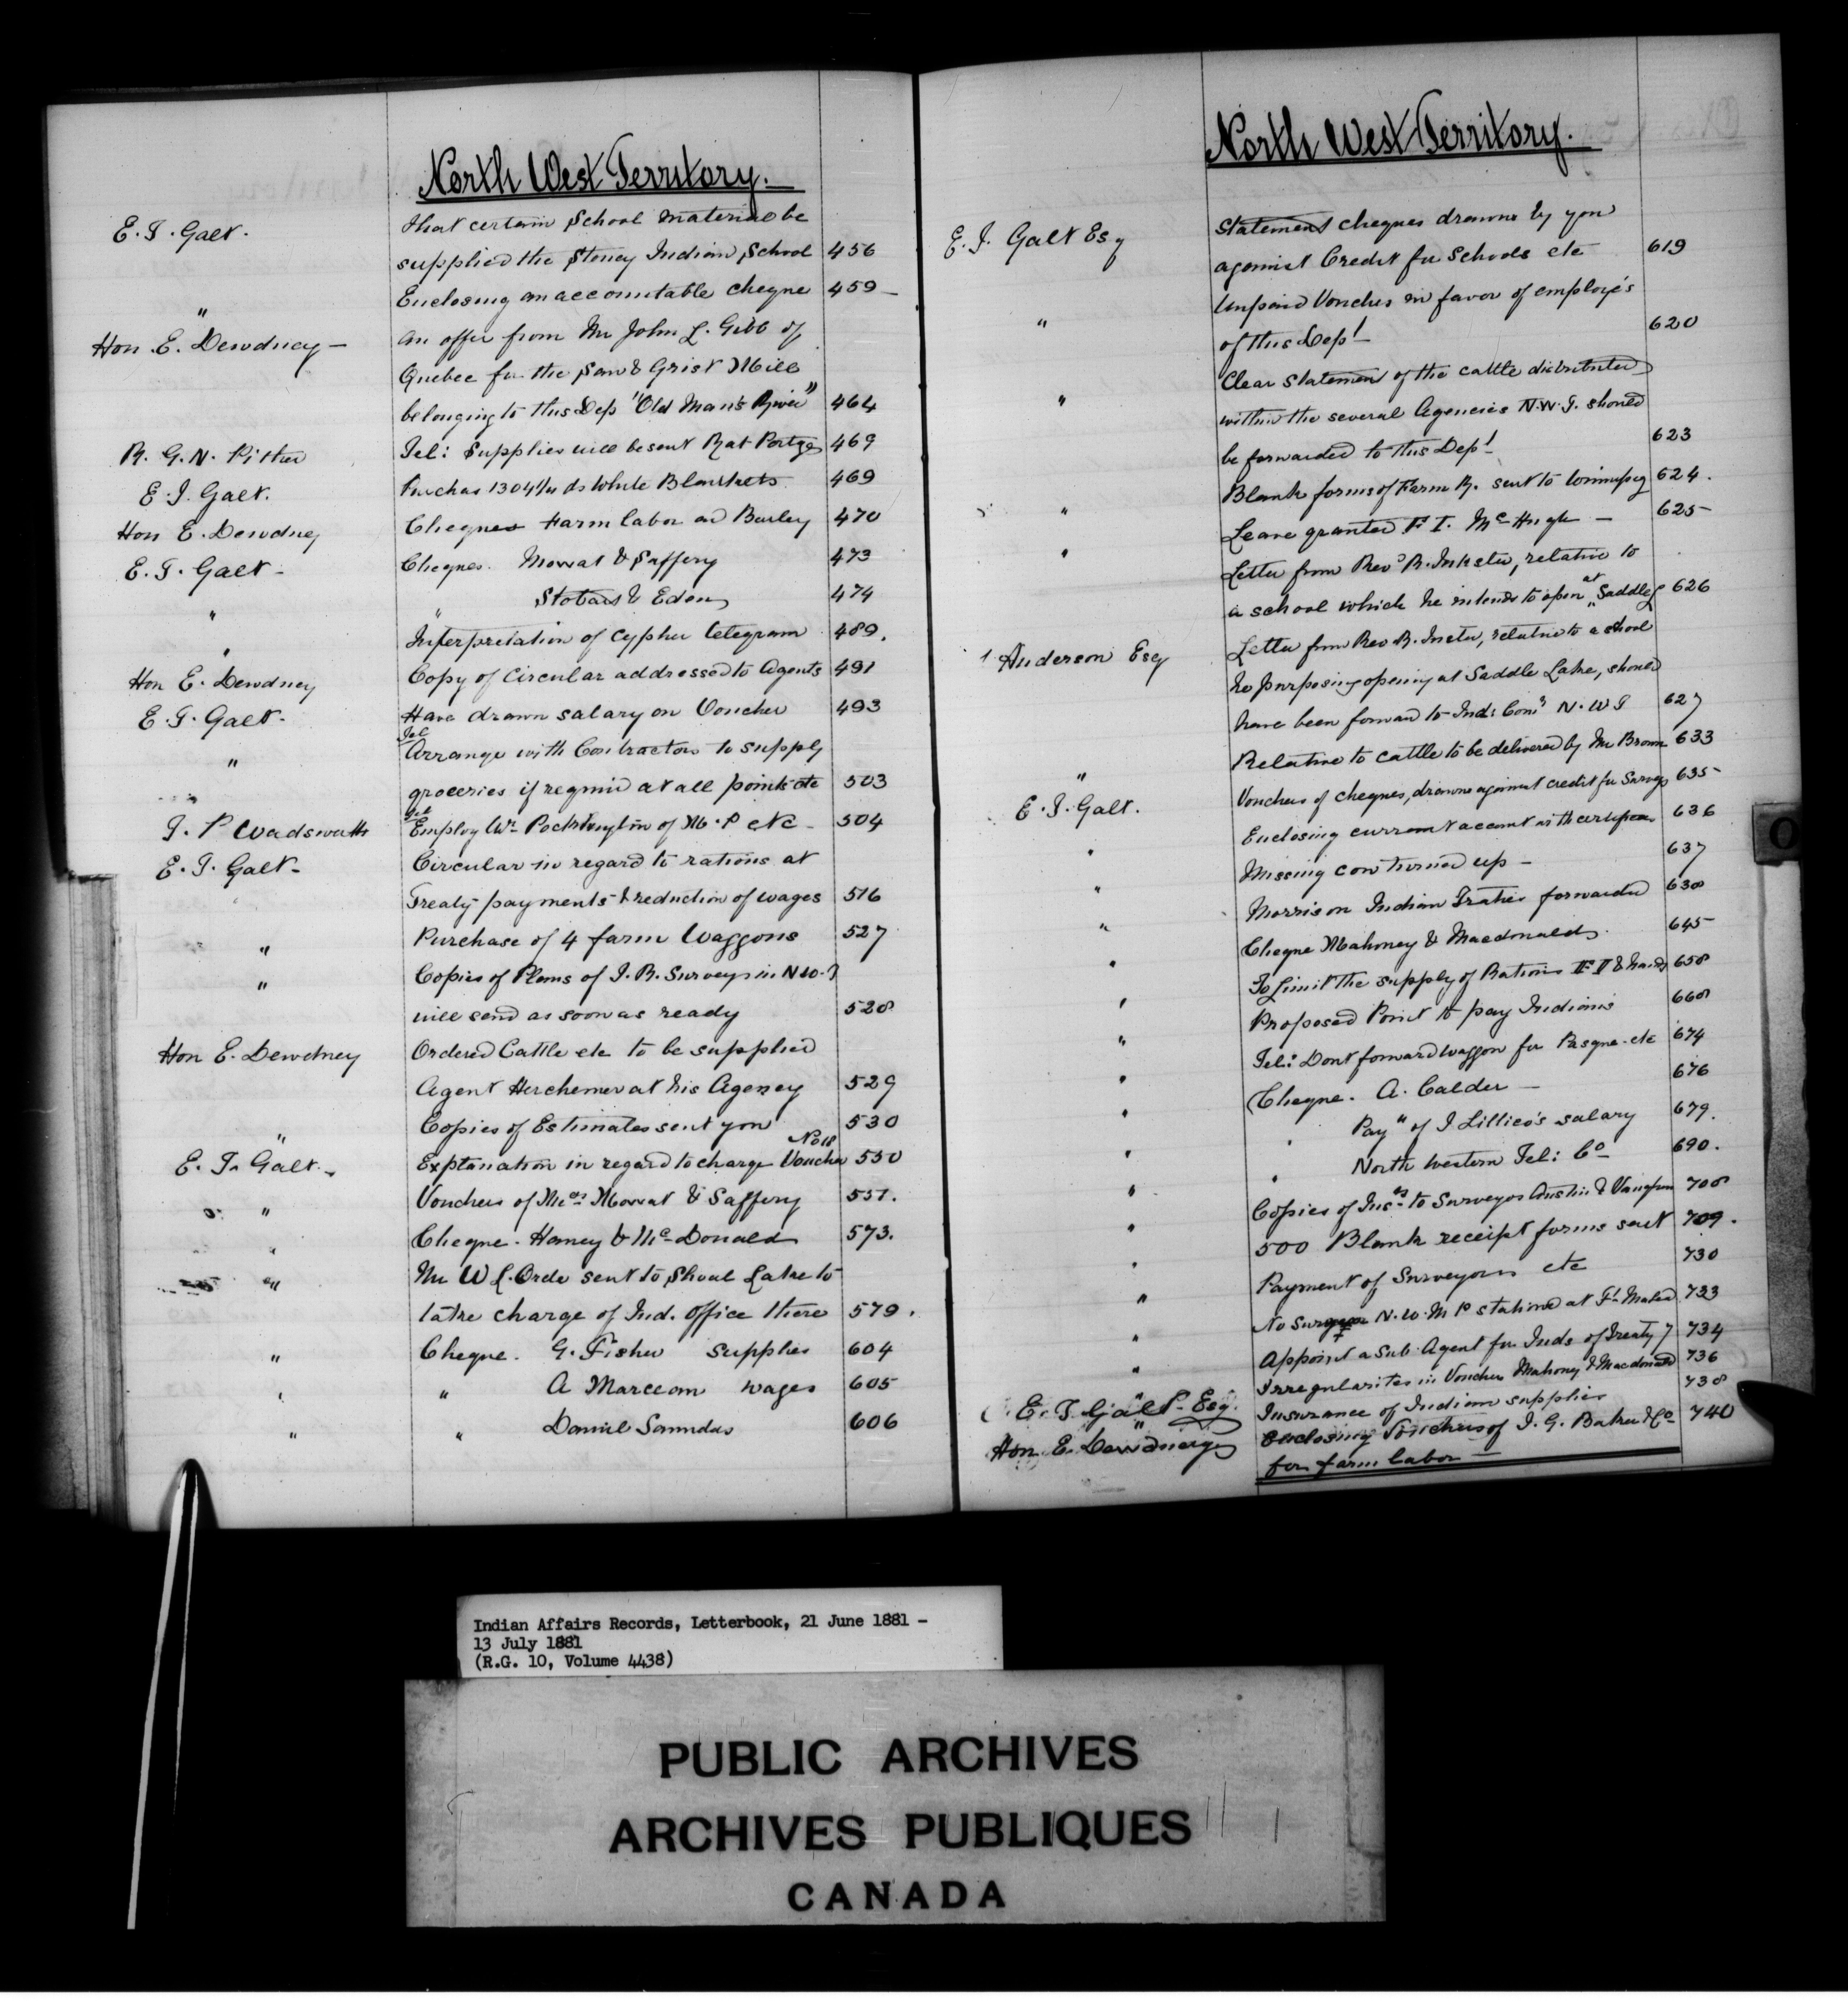 North West Territory.
E. T. Galt. that certain School material be
supplied the Stoney Indian School 456
" Enclosing an accountable cheque 459
Hon. E. Dewdney — An offer from Mr John L. Gibb of
Quebec for the Saw & Grist Mill
belonging to this Dep "Old Man's River" 464
R. G. N. Pither Tel: Supplies will be sent Rat Portge 469
E. T. Galt. Purchas 1304 1/4 ds White Blankets 469
Hon E. Dewdney Cheques Farm labor on Barley 470
E. T. Galt - Cheques. Mowat & Saffery 473
" " Stobart & Eden 474
" Interpretation of cypher telegram 489.
Hon E. Dewdney Copy of Circular addressed to Agents 491
E. T. Galt. Have drawn salary on Voucher 493
" Tel Arrange with Contractors to supply
groceries if requir'd at all points etc 503
T. P Wadsworth Tel Employ Wm Pocklington of M. P etc - 504
E. T. Galt - Circular in regard to rations at
Treaty payments & reduction of wages 516
" Purchase of 4 farm Waggons 527
" Copies of Plans of I. R. Surveys in N W. T
will send as soon as ready 528
Hon E. Dewdney Ordered Cattle etc to be supplied
Agent Herchemer at his Agency 529
" Copies of Estimates sent you 530
E. T. Galt. Explanation in regard to charge Voucher No 18 550
" Vouchers of Mess Mowat & Saffery 551.
" Cheque. Haney & McDonald 573.
" Mr W L. Orde sent to Shoal Lake to
take charge of Ind. Office there 579.
" Cheque. G. Fisher Supplies 604
" " A wages 605
" " Daniel Saunders 606
North West Territory.
E. T. Galt Esq Statement cheques drawn by you
against Credit for Schools etc 619
" Unpaid Voucher in favor of employé's
of this Dept — 620
" Clear Statement of the cattle distributed
within the several Agencies N.W.T. should
be forwarded to this Dept 623
Blank forms of Farm R. sent to Winnipeg 624.
" Leave granted F I. McHugh — 625
" Letter from Revd R. Inkster, relative to
a school which he intends to open at "Saddle L 626
Anderson Esq Letter from Rev R. Inster, relative to a school
he purposing opening at Saddle Lake, should
have been forward to Ind: Comr N. W T 627
" Relative to cattle to be delivered by Mr Brown 633
E. T. Galt. Vouchers of cheques, drawn against credit for Surveys 635
" Enclosing current account with 636
" Missing cow turned up — 637
" Morrison Indian Trader forwarded 638
" Cheque Mahoney & Macdonald. 645
" To Limit the supply of Rations F I & hands 658
" Proposed Point to pay Indians 668
" Tel: Dont forward waggon for Pasqua. etc 674
" Cheque. A. Calder — 676
" " Pay" of J Lillico's salary 679.
" " North Western Tel: Co 690.
" Copies of Insts to Surveyor Austin & Vaughan 708
" 500 Blank receipt forms sent 709.
" Payment of Surveyors etc 730
" No Surgeon N. W. M P stationed at Ft. 733
" Appoint a Sub. Agent for Inds of Treaty 7 734
" Irregularites in Voucher Mahoney & Macdonald 736
E. T. Galt - Esq. Insurance of Indian supplies 738
Hon. E. Dewdney Enclosing Vouchers of I. G. Baker & Co 740
for farm labor —
Indian Affairs Records, Letterbook, 21 June 1881 -
13 July 1881
(R.G. 10, Volume 4438)
PUBLIC ARCHIVES
ARCHIVES PUBLIQUES
CANADA